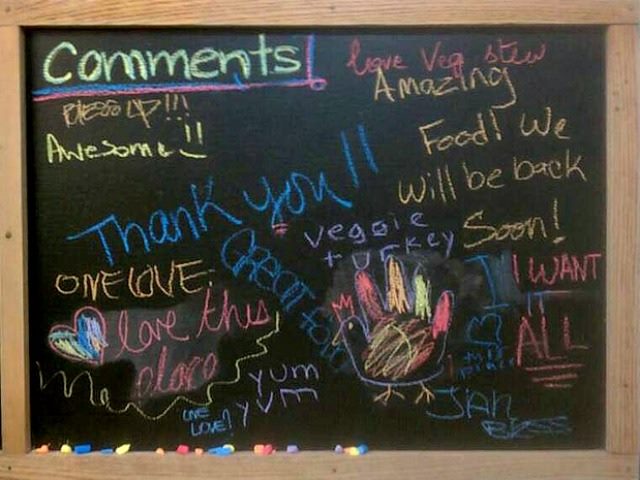 Comments!
Love Veg stew
Amazing
Food! We
will be back
Soon!
BLESS UP!!!
Awesome!!
Thank you!!
veggie
turkey
ONE LOVE
GREAT food
I WANT
IT
ALL
love this
place
yum
yum
LIVE
LOVE!
I
JAH
BLESS